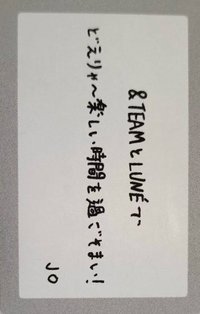 &TEAMとLUNÉで
どえりゃ〜楽しい時間を過ごそまい!
JO